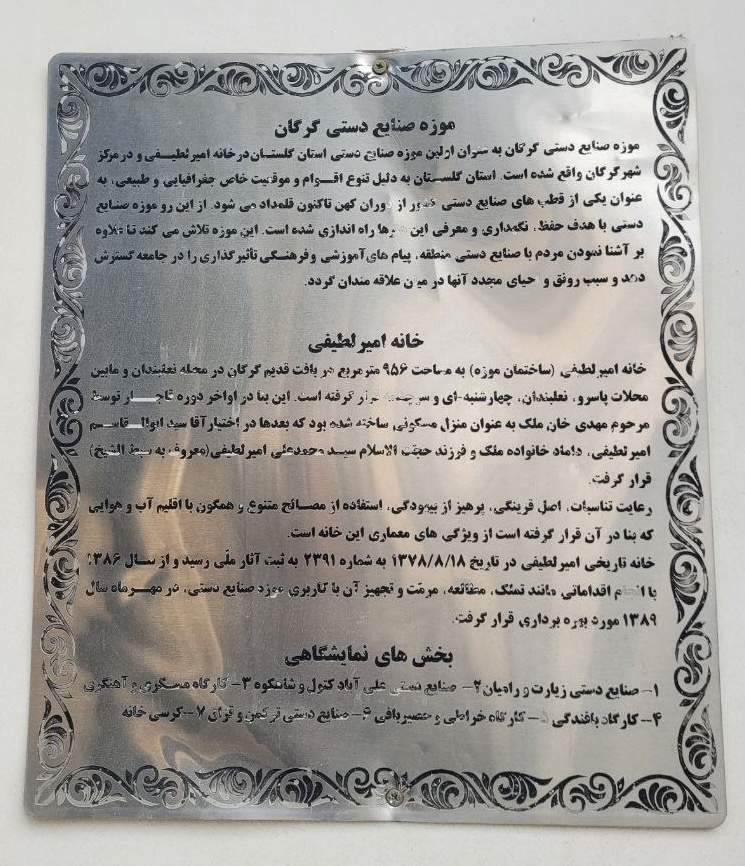 موزه صنایع دستی گرگان
موزه صنایع دستی گرگان به عنوان اولین موزه صنایع دستی استان گلستان در خانه امیر لطیفی و در مرکز
شهر گرگان واقع شده است. استان گلستان به دلیل تنوع اقوام و موقعیت خاص جغرافیایی و طبیعی، به
عنوان یکی از قطب های صنایع دستی کشور از دوران کهن تاکنون قلمداد می شود. از این رو موزه صنایع
دستی با هدف حفظ، نگهداری و معرفی این هنرها راه اندازی شده است. این موزه تلاش می کند تا علاوه
بر آشنا نمودن مردم با صنایع دستی منطقه، پیام های آموزشی و فرهنگی تأثیرگذاری را در جامعه گسترش
دهد و سبب رونق و احیای مجدد آنها در میان علاقه مندان گردد.
خانه امیر لطیفی
خانه امیر لطیفی (ساختمان موزه) به مساحت ۹۵۶ متر مربع در بافت قدیم گرگان در محله نعلبندان و مابین
محلات پاسرو، نعلبندان، چهارشنبه‌ای و سرچشمه قرار گرفته است. این بنا در اواخر دوره قاجار توسط
مرحوم مهدی خان ملک به عنوان منزل مسکونی ساخته شده بود که بعدها در اختیار آقا سید ابوالقاسم
امیر لطیفی، داماد خانواده ملک و فرزند حجت الاسلام سید محمدعلی امیر لطیفی (معروف به سبط الشیخ)
قرار گرفت.
رعایت تناسبات، اصل قرینگی، پرهیز از بیهودگی، استفاده از مصالح متنوع و همگون با اقلیم آب و هوایی
که بنا در آن قرار گرفته است از ویژگی های معماری این خانه است.
خانه تاریخی امیر لطیفی در تاریخ ۱۳۷۸/۸/۱۸ به شماره ۲۳۹۱ به ثبت آثار ملّی رسید و از سال ۱۳۸۶
با انجام اقداماتی مانند تملک، مطالعه، مرمّت و تجهیز آن با کاربری موزه صنایع دستی، در مهر ماه سال
۱۳۸۹ مورد بهره برداری قرار گرفت.
بخش های نمایشگاهی
۱- صنایع دستی زیارت و رامیان ۲- صنایع دستی علی آباد کتول و شاهکوه ۳- کارگاه مسگری و آهنگری
۴- کارگاه بافندگی ۵- کارگاه خراطی و حصیربافی ۶- صنایع دستی ترکمن و قزاق ۷- کرسی خانه